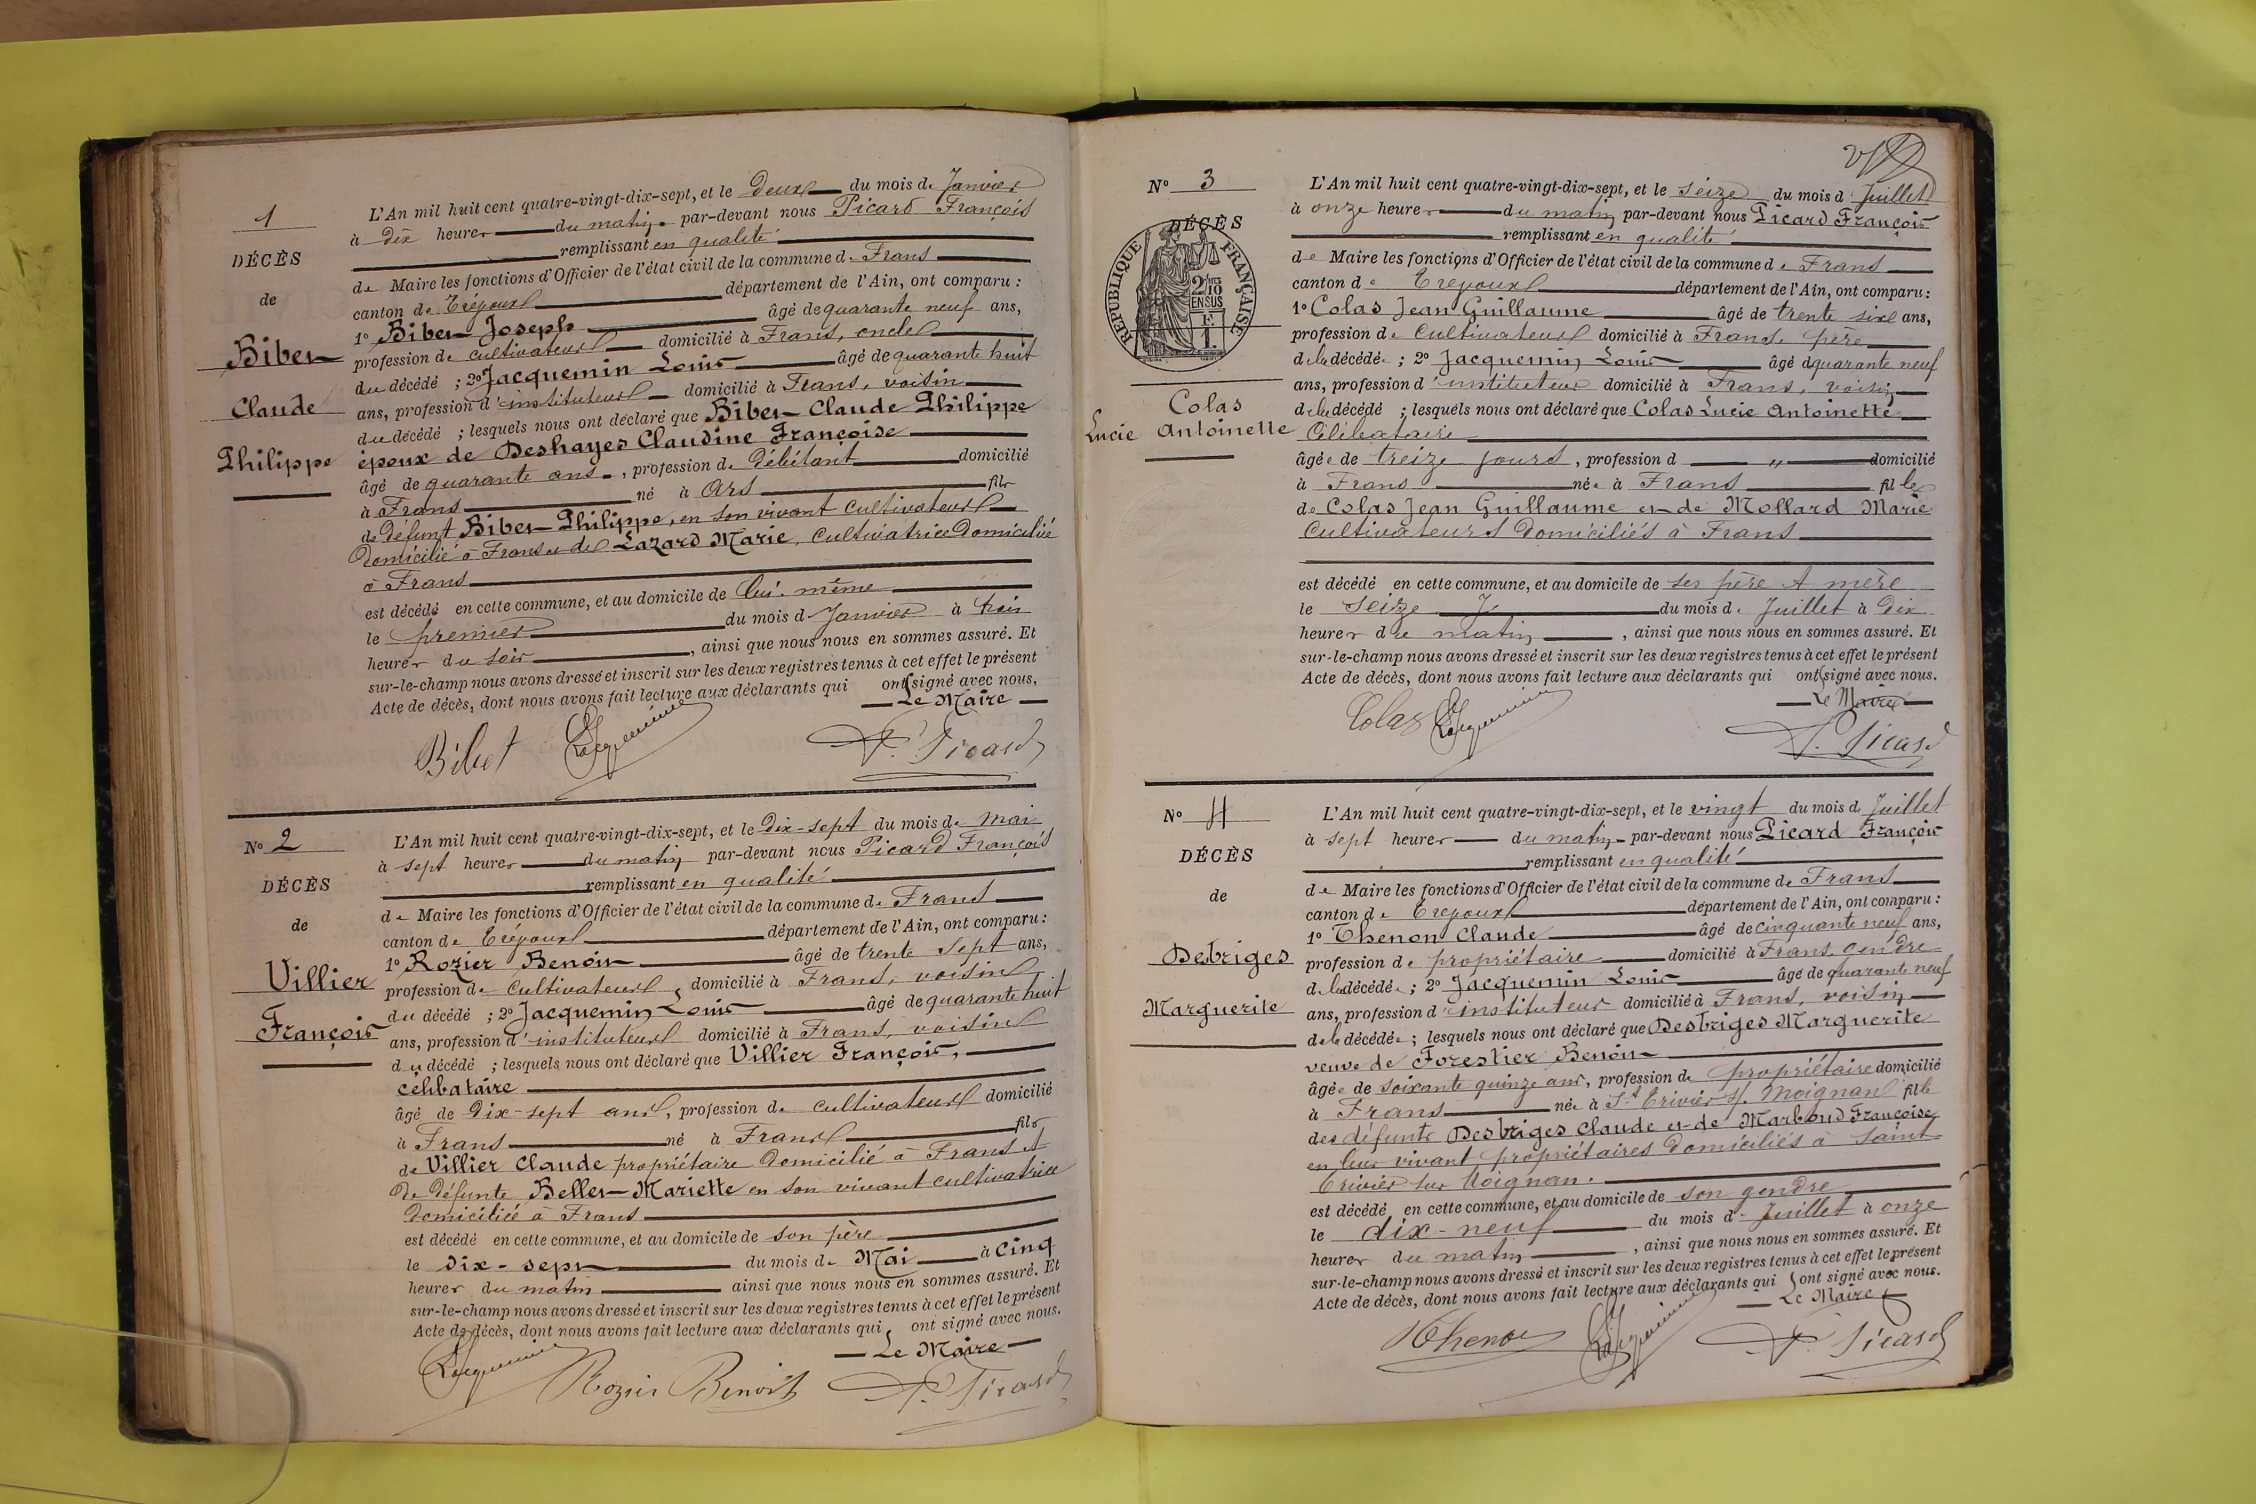 1
DÉCÈS
de
Bibet
Claude
Philippe
L'An mil huit cent quatre-vingt-dix-sept, et le Deux du mois de Janvier
à dix heures du matin par-devant nous Picard François
remplissant en qualité
de Maire les fonctions d'Officier de l'état civil de la commune de Frans
canton de Trévoux département de l'Ain, ont comparu :
1º Bibet Joseph âgé de quarante neuf ans,
profession de cultivateur domicilié à Frans, oncle
du décédé ; 2º Jacquemin Louis âgé de quarante huit
ans, profession d'instituteur domicilié à Frans, voisin
du décédé ; lesquels nous ont déclaré que Bibet Claude Philippe
époux de Deshayes Claudine Françoise
âgé de quarante ans, profession de Débitant domicilié
à Frans né à Ars fils
de défunt Bibet Philippe, en son vivant cultivateur
Domicilié à Frans et de Lazard Marie, Cultivatrice Domiciliée
à Frans
est décédé en cette commune, et au domicile de lui-même
le premier du mois d Janvier à trois
heures du soir, ainsi que nous nous en sommes assuré. Et
sur-le-champ nous avons dressé et inscrit sur les deux registres tenus à cet effet le présent
Acte de décès, dont nous avons fait lecture aux déclarants qui ont signé avec nous.
Le Maire
Bibet Jacquemin F. Picard
Nº 2
DÉCÈS
de
Villier
François
L'An mil huit cent quatre-vingt-dix-sept, et le Dix-sept du mois de Mai
à sept heures du matin par-devant nous Picard François
remplissant en qualité
de Maire les fonctions d'Officier de l'état civil de la commune de Frans
canton de Trévoux département de l'Ain, ont comparu :
1º Rozier Benoit âgé de trente sept ans,
profession de cultivateur, domicilié à Frans, voisin
du décédé ; 2º Jacquemin Louis âgé de quarante huit
ans, profession d'instituteur domicilié à Frans, voisin
du décédé ; lesquels nous ont déclaré que Villier François,
célibataire
âgé de Dix-sept ans, profession de cultivateur domicilié
à Frans né à Frans fils
de Villier Claude propriétaire Domicilié à Frans et
De défunte Bellet Mariette en son vivant cultivatrice
Domiciliée à Frans
est décédé en cette commune, et au domicile de son père
le dix-sept du mois de Mai à Cinq
heures du matin ainsi que nous nous en sommes assuré. Et
sur-le-champ nous avons dressé et inscrit sur les deux registres tenus à cet effet le présent
Acte de décès, dont nous avons fait lecture aux déclarants qui, ont signé avec nous.
Le Maire
Jacquemin Rozier Benoit F. Picard
Nº 3
DÉCÈS
RÉPUBLIQUE FRANÇAISE
2/10 EN SUS
Colas
Lucie Antoinette
L'An mil huit cent quatre-vingt-dix-sept, et le seize du mois d Juillet
à onze heures du matin par-devant nous Picard François
remplissant en qualité
de Maire les fonctions d'Officier de l'état civil de la commune de Frans
canton de Trévoux département de l'Ain, ont comparu :
1º Colas Jean Guillaume âgé de trente six ans,
profession de cultivateur domicilié à Frans, père
de la décédée ; 2º Jacquemin Louis âgé d quarante neuf
ans, profession d'instituteur domicilié à Frans, voisin
de la décédé ; lesquels nous ont déclaré que Colas Lucie Antoinette
Célibataire
âgée de treize jours, profession d " domicilié
à Frans née à Frans fille
de Colas Jean Guillaume et de Mollard Marie
Cultivateurs Domiciliés à Frans
est décédé en cette commune, et au domicile de ses père et mère
le seize du mois de Juillet à Dix
heures du matin, ainsi que nous nous en sommes assuré. Et
sur-le-champ nous avons dressé et inscrit sur les deux registres tenus à cet effet le présent
Acte de décès, dont nous avons fait lecture aux déclarants qui ont signé avec nous.
Le Maire
Colas Jacquemin F. Picard
Nº 4
DÉCÈS
de
Desbriges
Marguerite
L'An mil huit cent quatre-vingt-dix-sept, et le vingt du mois d Juillet
à sept heures du matin par-devant nous Picard François
remplissant en qualité
de Maire les fonctions d'Officier de l'état civil de la commune de Frans
canton de Trévoux département de l'Ain, ont comparu :
1º Thenon Claude âgé de cinquante neuf ans,
profession de propriétaire domicilié à Frans, Gendre
de la décédée ; 2º Jacquemin Louis âgé de quarante neuf
ans, profession d'instituteur domicilié à Frans, voisin
de la décédée ; lesquels nous ont déclaré que Desbriges Marguerite
veuve de Forestier Benoit
âgée de soixante quinze ans, profession de propriétaire domicilié
à Frans née à St Trivier s/ Moignans fille
des défunts Desbriges Claude et de Marboud Françoise
en leur vivant propriétaires Domiciliés à Saint
Trivier sur Moignan.
est décédé en cette commune, et au domicile de son gendre
le dix-neuf du mois d Juillet à onze
heures du matin, ainsi que nous nous en sommes assuré. Et
sur-le-champ nous avons dressé et inscrit sur les deux registres tenus à cet effet le présent
Acte de décès, dont nous avons fait lecture aux déclarants qui ont signé avec nous.
Le Maire
Thenon Jacquemin F. Picard